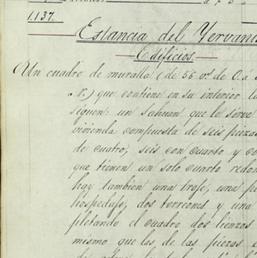 1.137.
Estancia del Yervani
Edificios.
Un cuadro de muralla (de 56 vs. de O. a
que contiene en su interior lo
siguen: un sahuan que le sirve
vivienda compuesta de seis piezas
de cuatro, seis con cuarto y co
que tienen un solo cuarto redon
hay tambien una troje, una pu
hospedaje, dos torreones y una
pilotando el cuadro dos lienzos
mismo que les de las piezas